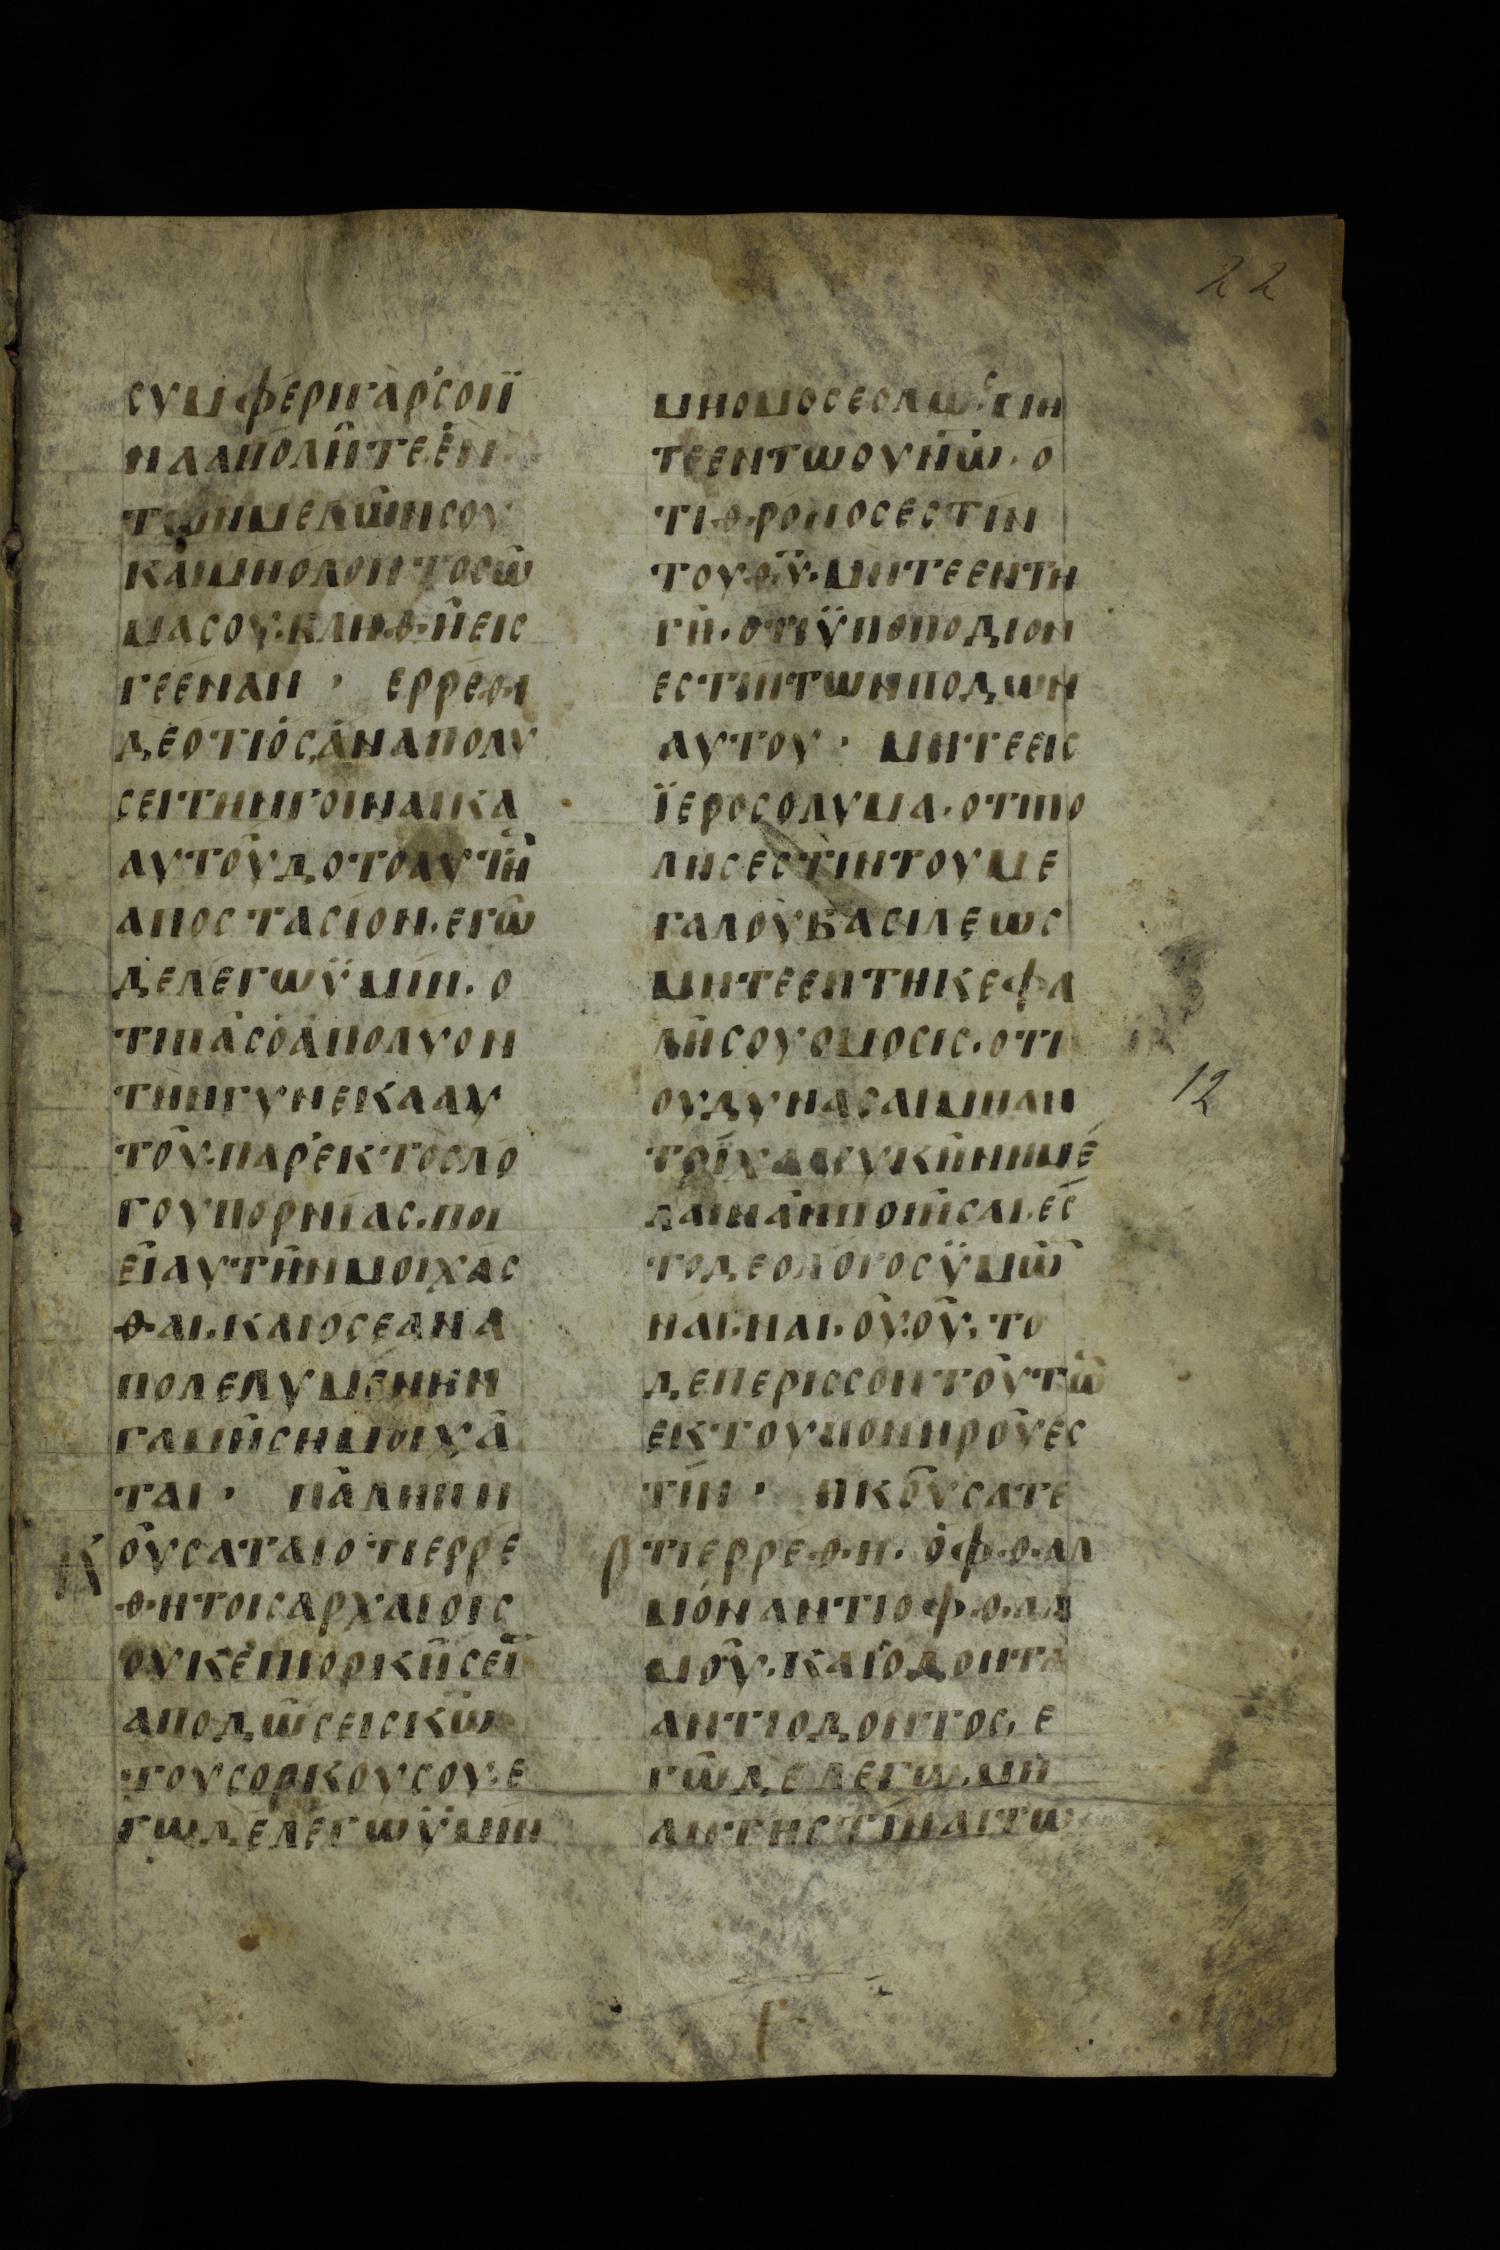 22
ϲυμφερηγαρϲοιϊ
νααπολητεεν·
τωνμελωνϲου
καιμηολοντοϲω
μαϲου·κληθηειϲ
γεεναν · ερρεθι
δεοτιοϲαναπολυ
ϲειτηνγοιναικα
αυτουδοτοαυτη
αποϲταϲιον·εγω
δελεγωϋμιν·ο
τιπαϲοαπολυον
τηνγυνεκααυ
του·παρεκτοϲλο
γουπορνιαϲ·ποι
ειαυτηνμοιχαϲ
θαι·καιοϲεανα
πολελυμενην
γαμηϲημοιχα
ται · παληνη
κουϲαταιοτιερρε
θητοιϲαρχαιοιϲ
ουκεπιορκηϲει
αποδωϲειϲκω
τουϲορκουϲου·ε
γωδελεγωϋμιν
μηομοϲεολωϲμη
τεεντωουνω·ο
τιθρονοϲεϲτιν
τουθυ·μητεεντη
γη·οτιϋποποδιον
εϲτιντωνποδων
αυτου · μητεειϲ
ϊεροϲολυμα·οτιπο
ληϲεϲτιντουμε
γαλουβαϲιλεωϲ
μητεεντηκεφα
ληϲουομοϲιϲ·οτι
ουδυναϲαιμηαν
τριχαλευκηνημε
λαιναηποιηϲαι·εϲ
τοδεολογοϲϋμω
ναι·ναι·ου·ου·το
δεπεριϲϲοντουτω
εκτουπονηρουεϲ
τιν · ηκουϲατε
τιερρεθη·οφθαλ
μοναντιοφθαλ
μου·καιοδοντα
αντιοδοντοϲ·ε
γωδελεγω·μη
αντηϲτιναιτω
12